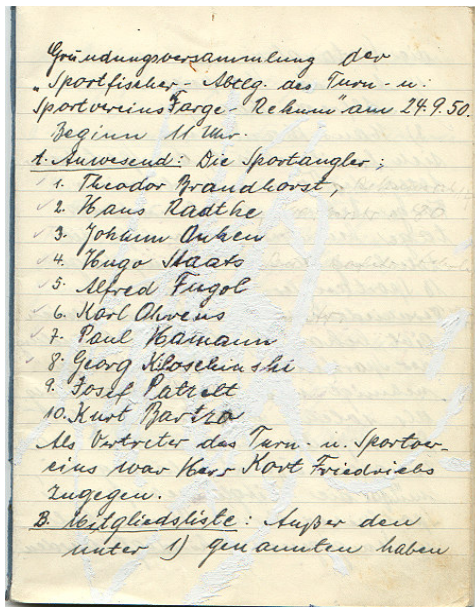 Gründungsversammlung der
„Sportfischer-Abtlg. des Turn- u.
Sportvereins Farge-Rekum" am 24.9.50.
Beginn 11 Uhr.
A. Anwesend: Die Sportangler;
1. Theodor Brandhorst,
2. Hans Radtke
3. Johann Onken
4. Hugo Staats
5. Alfred Fugol
6. Karl Ohrens
7. Paul Hamann
8. Georg Kiloschinski
9. Josef Patzelt
10. Kurt Bartzo
Als Vertreter des Turn- u. Sportver-
eins war Herr Kort Friedrichs
zugegen.
B. Mitgliedsliste: Außer den
unter 1) genannten haben